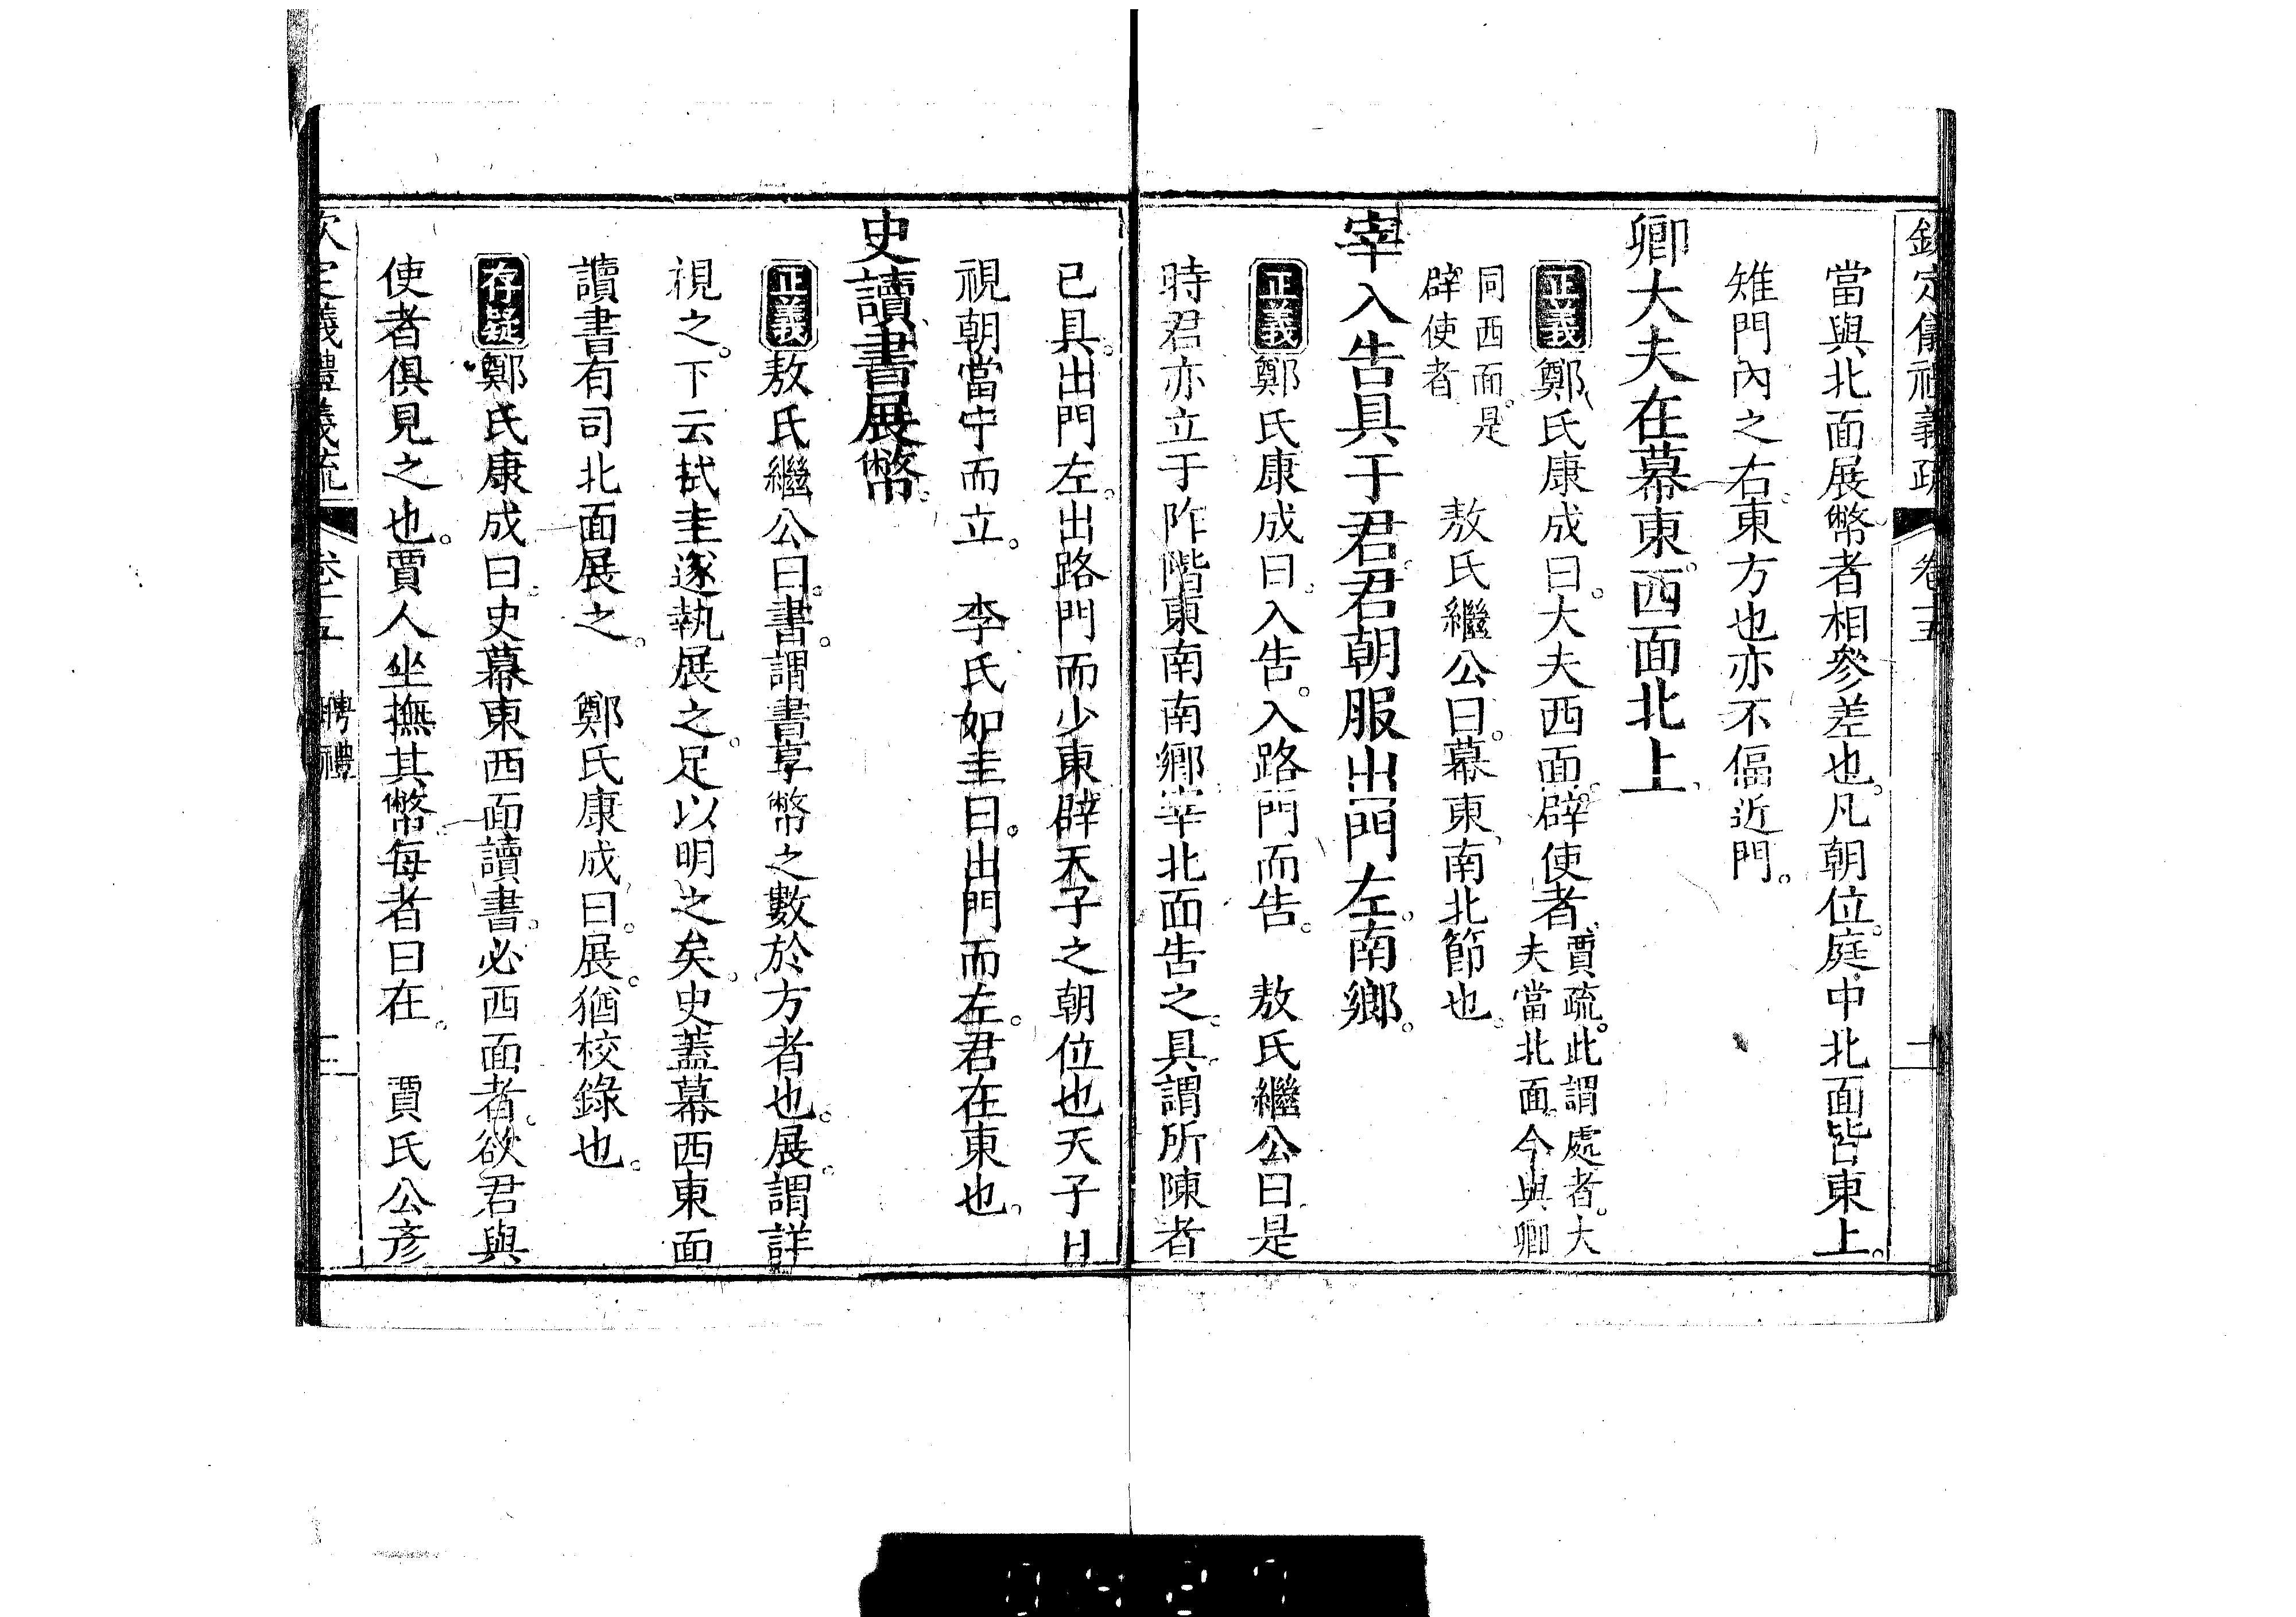 欽定儀禮義疏 卷十五
當與北面展幣者相參差也。凡朝位。庭中北面皆東上。
雉門內之右。東方也亦不偪近門。
卿大夫在幕東。西面北上。
正義鄭氏康成曰。大夫西面。辟使者。賈疏。此謂處者。大
夫當北面。今與卿
同西面。是
辟使者
敖氏繼公曰。幕東。南北節也。
宰入告具于君。君朝服出門左。南鄉。
正義鄭氏康成曰。入告。入路門而告。 敖氏繼公曰。是
時君亦立于阼階東南南鄉。宰北面告之。具。謂所陳者
已具。出門左。出路門而少東。辟天子之朝位也天子日
視朝當宁而立。 李氏如圭曰。出門而左。君在東也。
史讀書展幣。
正義敖氏繼公曰。書。謂書享幣之數於方者也。展。謂詳
視之。下云拭圭遂執展之。足以明之矣。史蓋幕西東面
讀書有司北面展之。 鄭氏康成曰。展。猶校錄也。
存疑鄭氏康成曰。史幕東西面讀書。必西面者。欲君與
使者俱見之也。賈人坐撫其幣。每者曰在。 賈氏公彥
欽定儀禮義疏 卷十五 聘禮 三